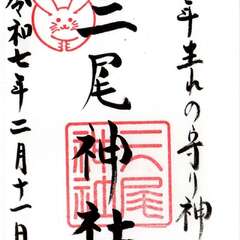 年生れの守り神
三尾神社
三尾
神社
令和七年二月十一日